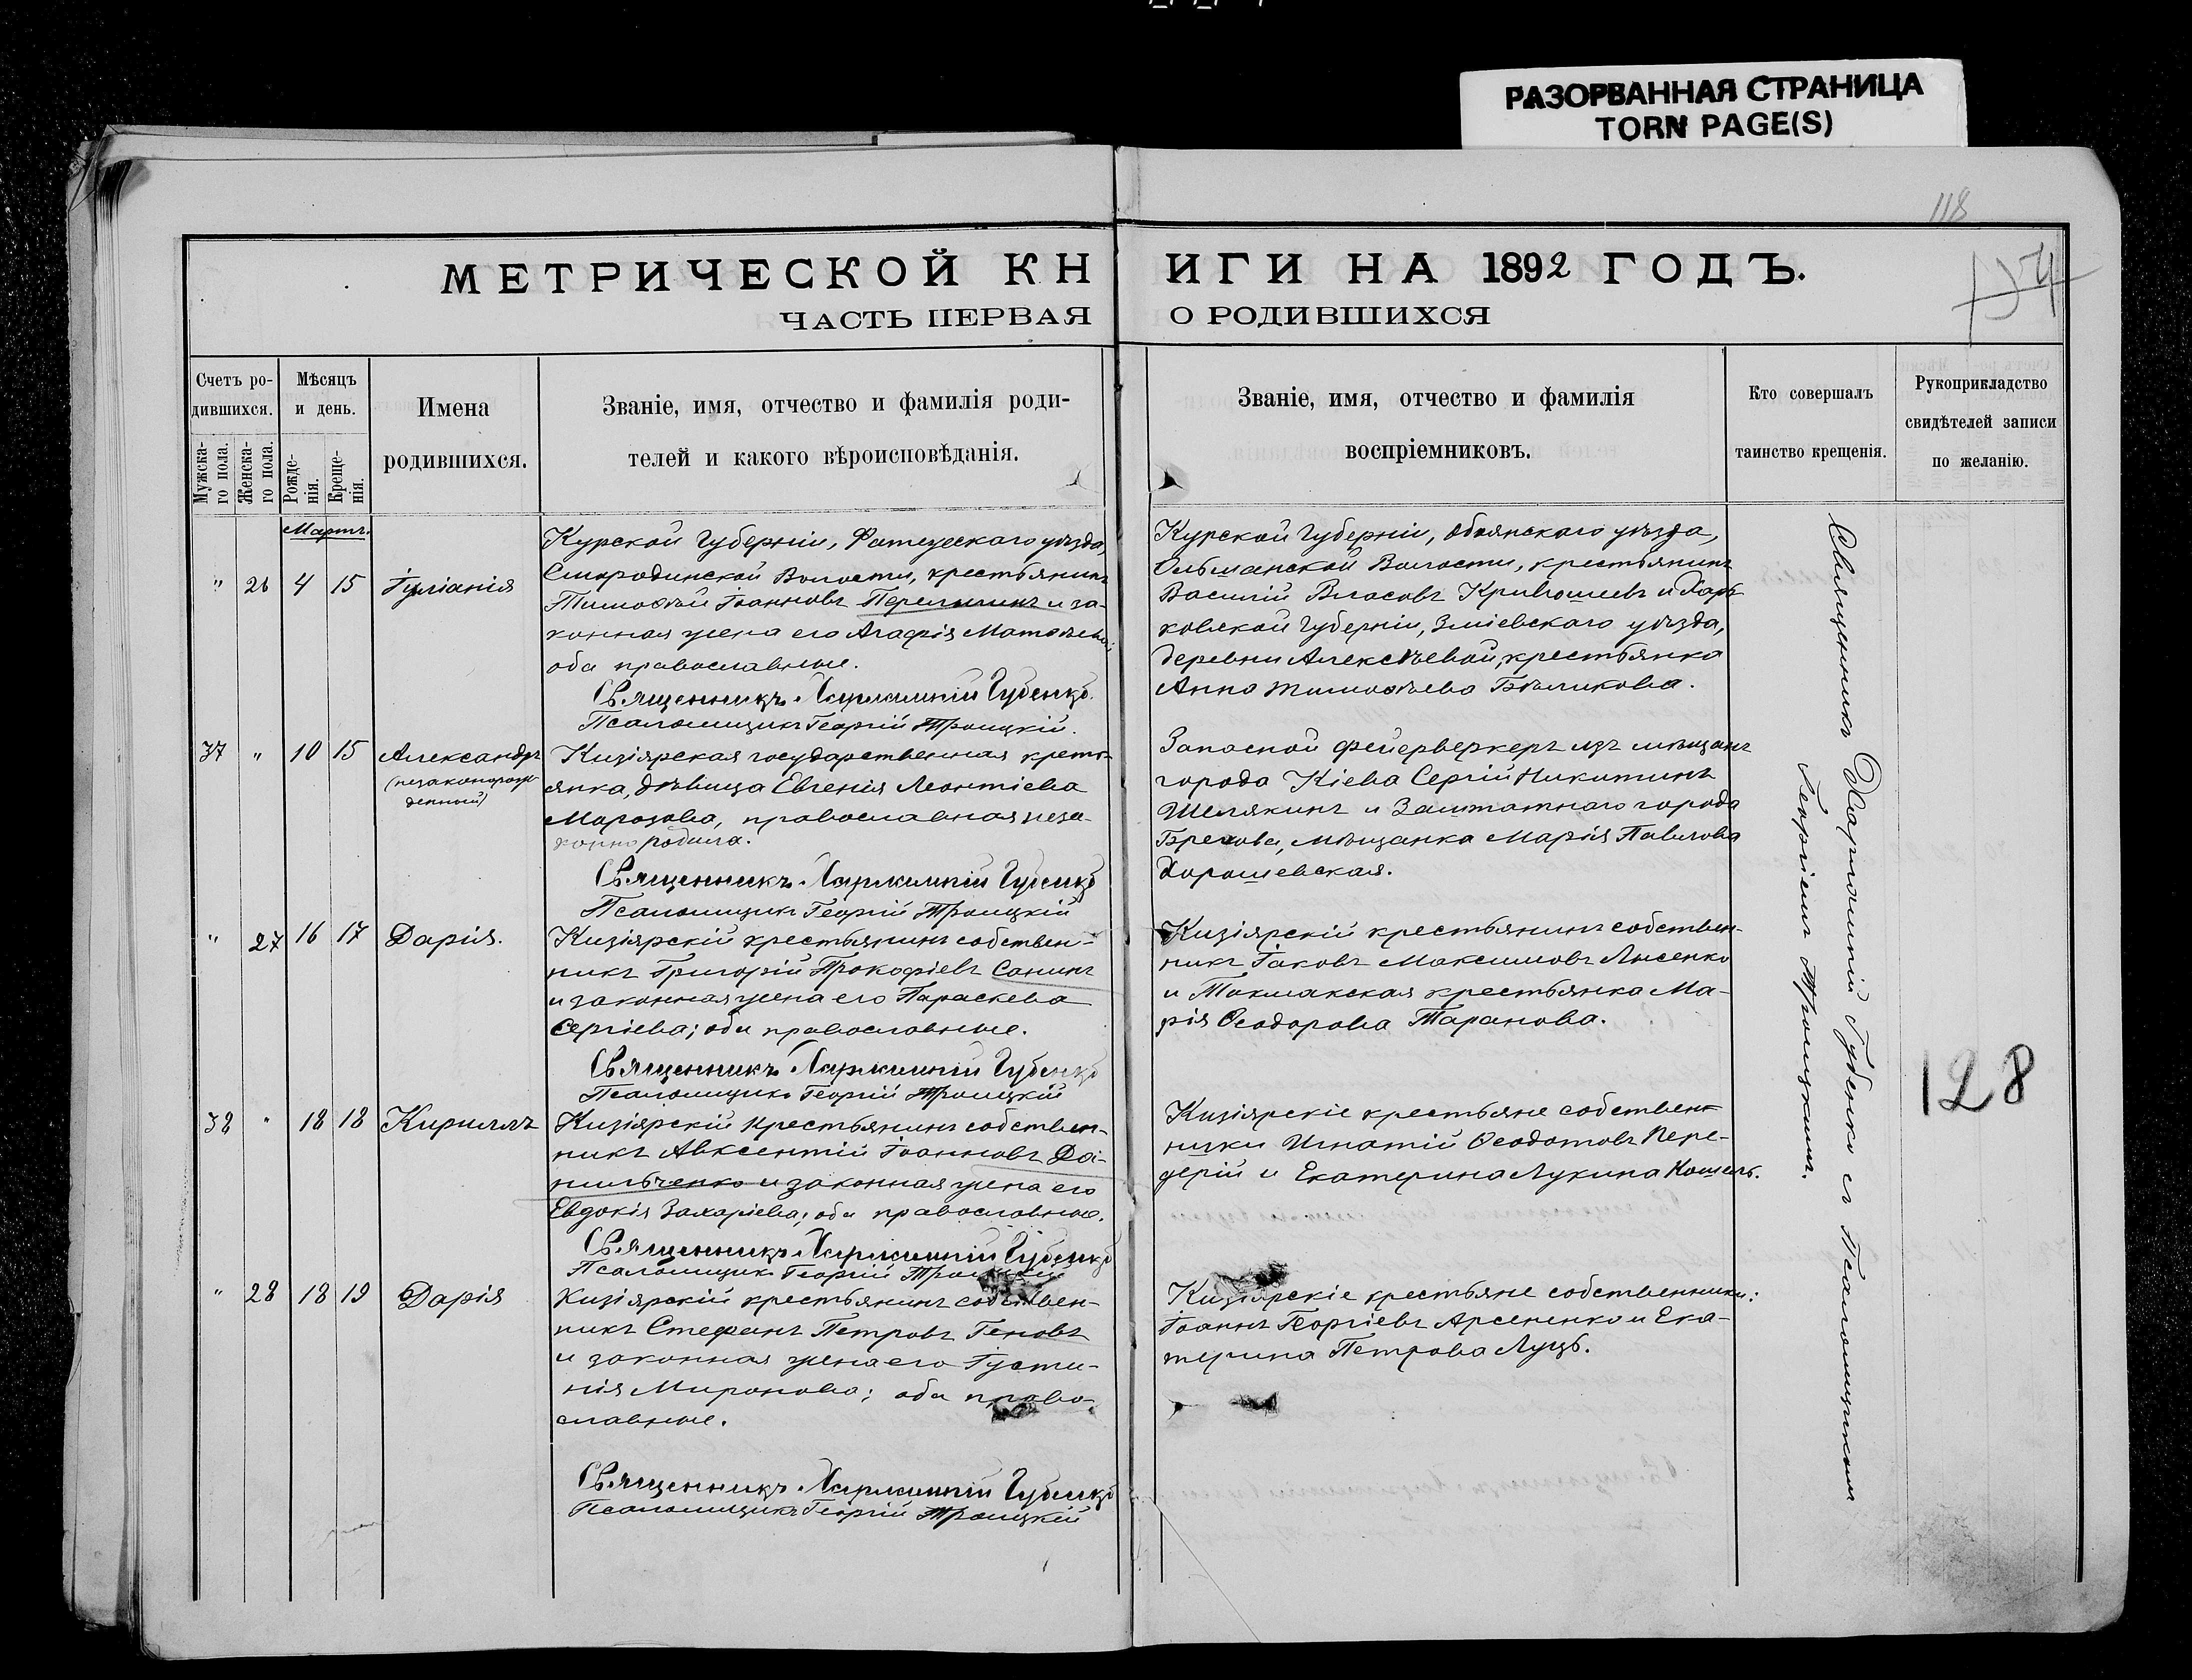 РАЗОРВАННАЯ СТРАНИЦА
TORN PAGE(S)
118
МЕТРИЧЕСКОЙ КНИГИ НА 1892 ГОДЪ.
ЧАСТЬ ПЕРВАЯ О РОДИВШИХСЯ
Счетъ ро-
дившихся.
Мужска-
го пола.
Женска-
го пола.
Мѣсяцъ
и день.
Рожде-
нія.
Креще-
нія.
Имена
родившихся.
Званіе, имя, отчество и фамилія роди-
телей и какого вѣроисповѣданія.
Званіе, имя, отчество и фамилія
воспріемниковъ.
Кто совершалъ
таинство крещенія.
Рукоприкладство
свидѣтелей записи
по желанію.
Мартъ.
" 26 4 15 Іуліанія
Курской Губерніи, Фатежскаго уѣзда,
Смородинской Волости, крестьянинъ
Тимоѳей Іоанновъ и за-
конная жена его Агафія
оба православные.
Священникъ Харлампій Губенко.
Псаломщикъ Георгій Троицкій.
Курской Губерніи, Обоянскаго уѣзда,
Ольшанской Волости, крестьянинъ
Василій Власовъ Кривошеевъ и Харь-
ковской Губерніи, Зміевскаго уѣзда,
деревни Алексѣевой, крестьянка
Анна Тимоѳѣева Бѣликова.
37 " 10 15 Александръ
(незаконорож-
денный)
Кизіярская государственная крестъ-
янка, дѣвица Евгенія Леонтіева
Морозова, православная неза-
конно родила.
Священникъ Харлампій Губенко
Псаломщикъ Георгій Троицкій
Запасной фейерверкеръ изъ мѣщанъ
города Кіева Сергій Никитинъ
Шелякинъ и Заштатнаго города
мѣщанка Марія Павлова
Хорошевская.
" 27 16 17 Дарія.
Кизіярскій крестьянинъ собствен-
никъ Григорій Прокофіевъ Санинъ
и законная жена его Параскева
Сергіева; оба православные.
Священникъ Харлампій Губенко
Псаломщикъ Георгій Троицкій
Кизіярскій крестьянинъ собствен-
никъ Іаковъ Максимовъ Лысенко
и Токмакская крестьянка Ма-
рія Ѳеодорова Таранова.
38 " 18 18 Кириллъ
Кизіярскій крестьянинъ собствен-
никъ Авксентій Іоанновъ Да-
нильченко и законная жена его
Евдокія Захаріева; оба православные.
Священникъ Харлампій Губенко
Псаломщикъ Георгій Троицкій
Кизіярскіе крестьяне собствен-
ники Игнатій Ѳеодотовъ Пере-
дерій и Екатерина Лукина Кошель.
" 28 18 19 Дарія
Кизіярскій крестьянинъ собствен-
никъ Стефанъ Петровъ Геновъ
и законная жена его Іусти-
нія Миронова; оба право-
славные.
Священникъ Харлампій Губенко
Псаломщикъ Георгій Троицкій
Кизіярскіе крестьяне собственники:
Іоаннъ Георгіевъ Арсененко и Ека-
терина Петрова Луць.
Священникъ Харлампій Губенко съ Псаломщикомъ
Георгіемъ Троицкимъ.
128